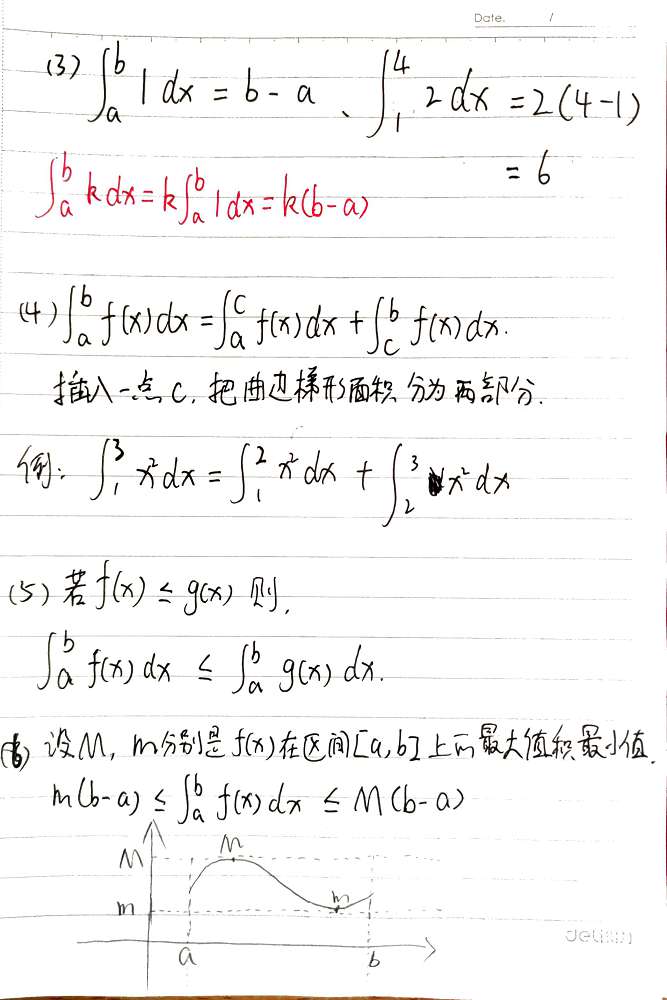 Date. /
(3) ∫_a^b 1 dx = b - a 、 ∫_1^4 2 dx = 2(4-1)
= 6
∫_a^b k dx = k∫_a^b 1 dx = k(b-a)
(4) ∫_a^b f(x) dx = ∫_a^c f(x) dx + ∫_c^b f(x) dx.
插入一点 C, 把曲边梯形面积分为两部分.
例: ∫_1^3 x² dx = ∫_1^2 x² dx + ∫_2^3 x² dx
(5) 若 f(x) ≤ g(x) 则,
∫_a^b f(x) dx ≤ ∫_a^b g(x) dx.
(6) 设 M, m分别是 f(x) 在区间[a,b]上的最大值积最小值.
m(b-a) ≤ ∫_a^b f(x) dx ≤ M(b-a)
M M
m m
a b
deli